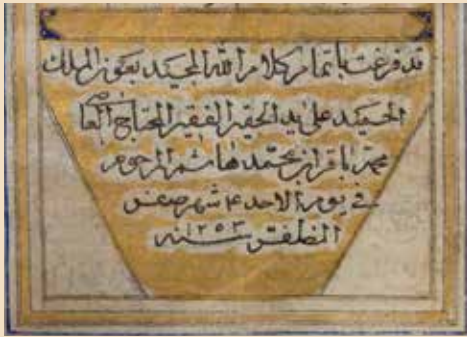 قد فرغت باتمام كلام الله المجيد بعون الملك
الحميد على يد الحقير الفقير المحتاج العاصي
محمد باقر ابن محمد هاشم المرحوم
في يوم الاحد ٤ شهر صفر
المظفر سنه ١٢٥٣